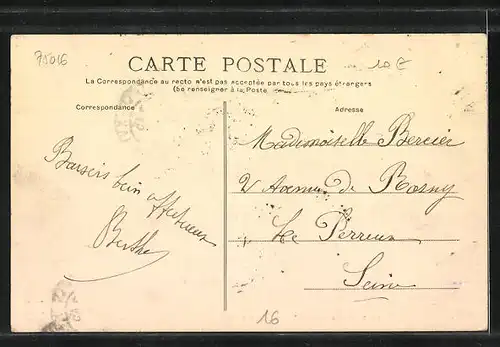 75016
10€
CARTE POSTALE
La Correspondance au recto n'est pas acceptée par tous les pays étrangers
(Se renseigner à la Poste
Correspondance
Adresse
Baisers bien affectueux
Berthe
Mademoiselle Bercier
2 Avenue de Rosny
Le Perreux
Seine
16